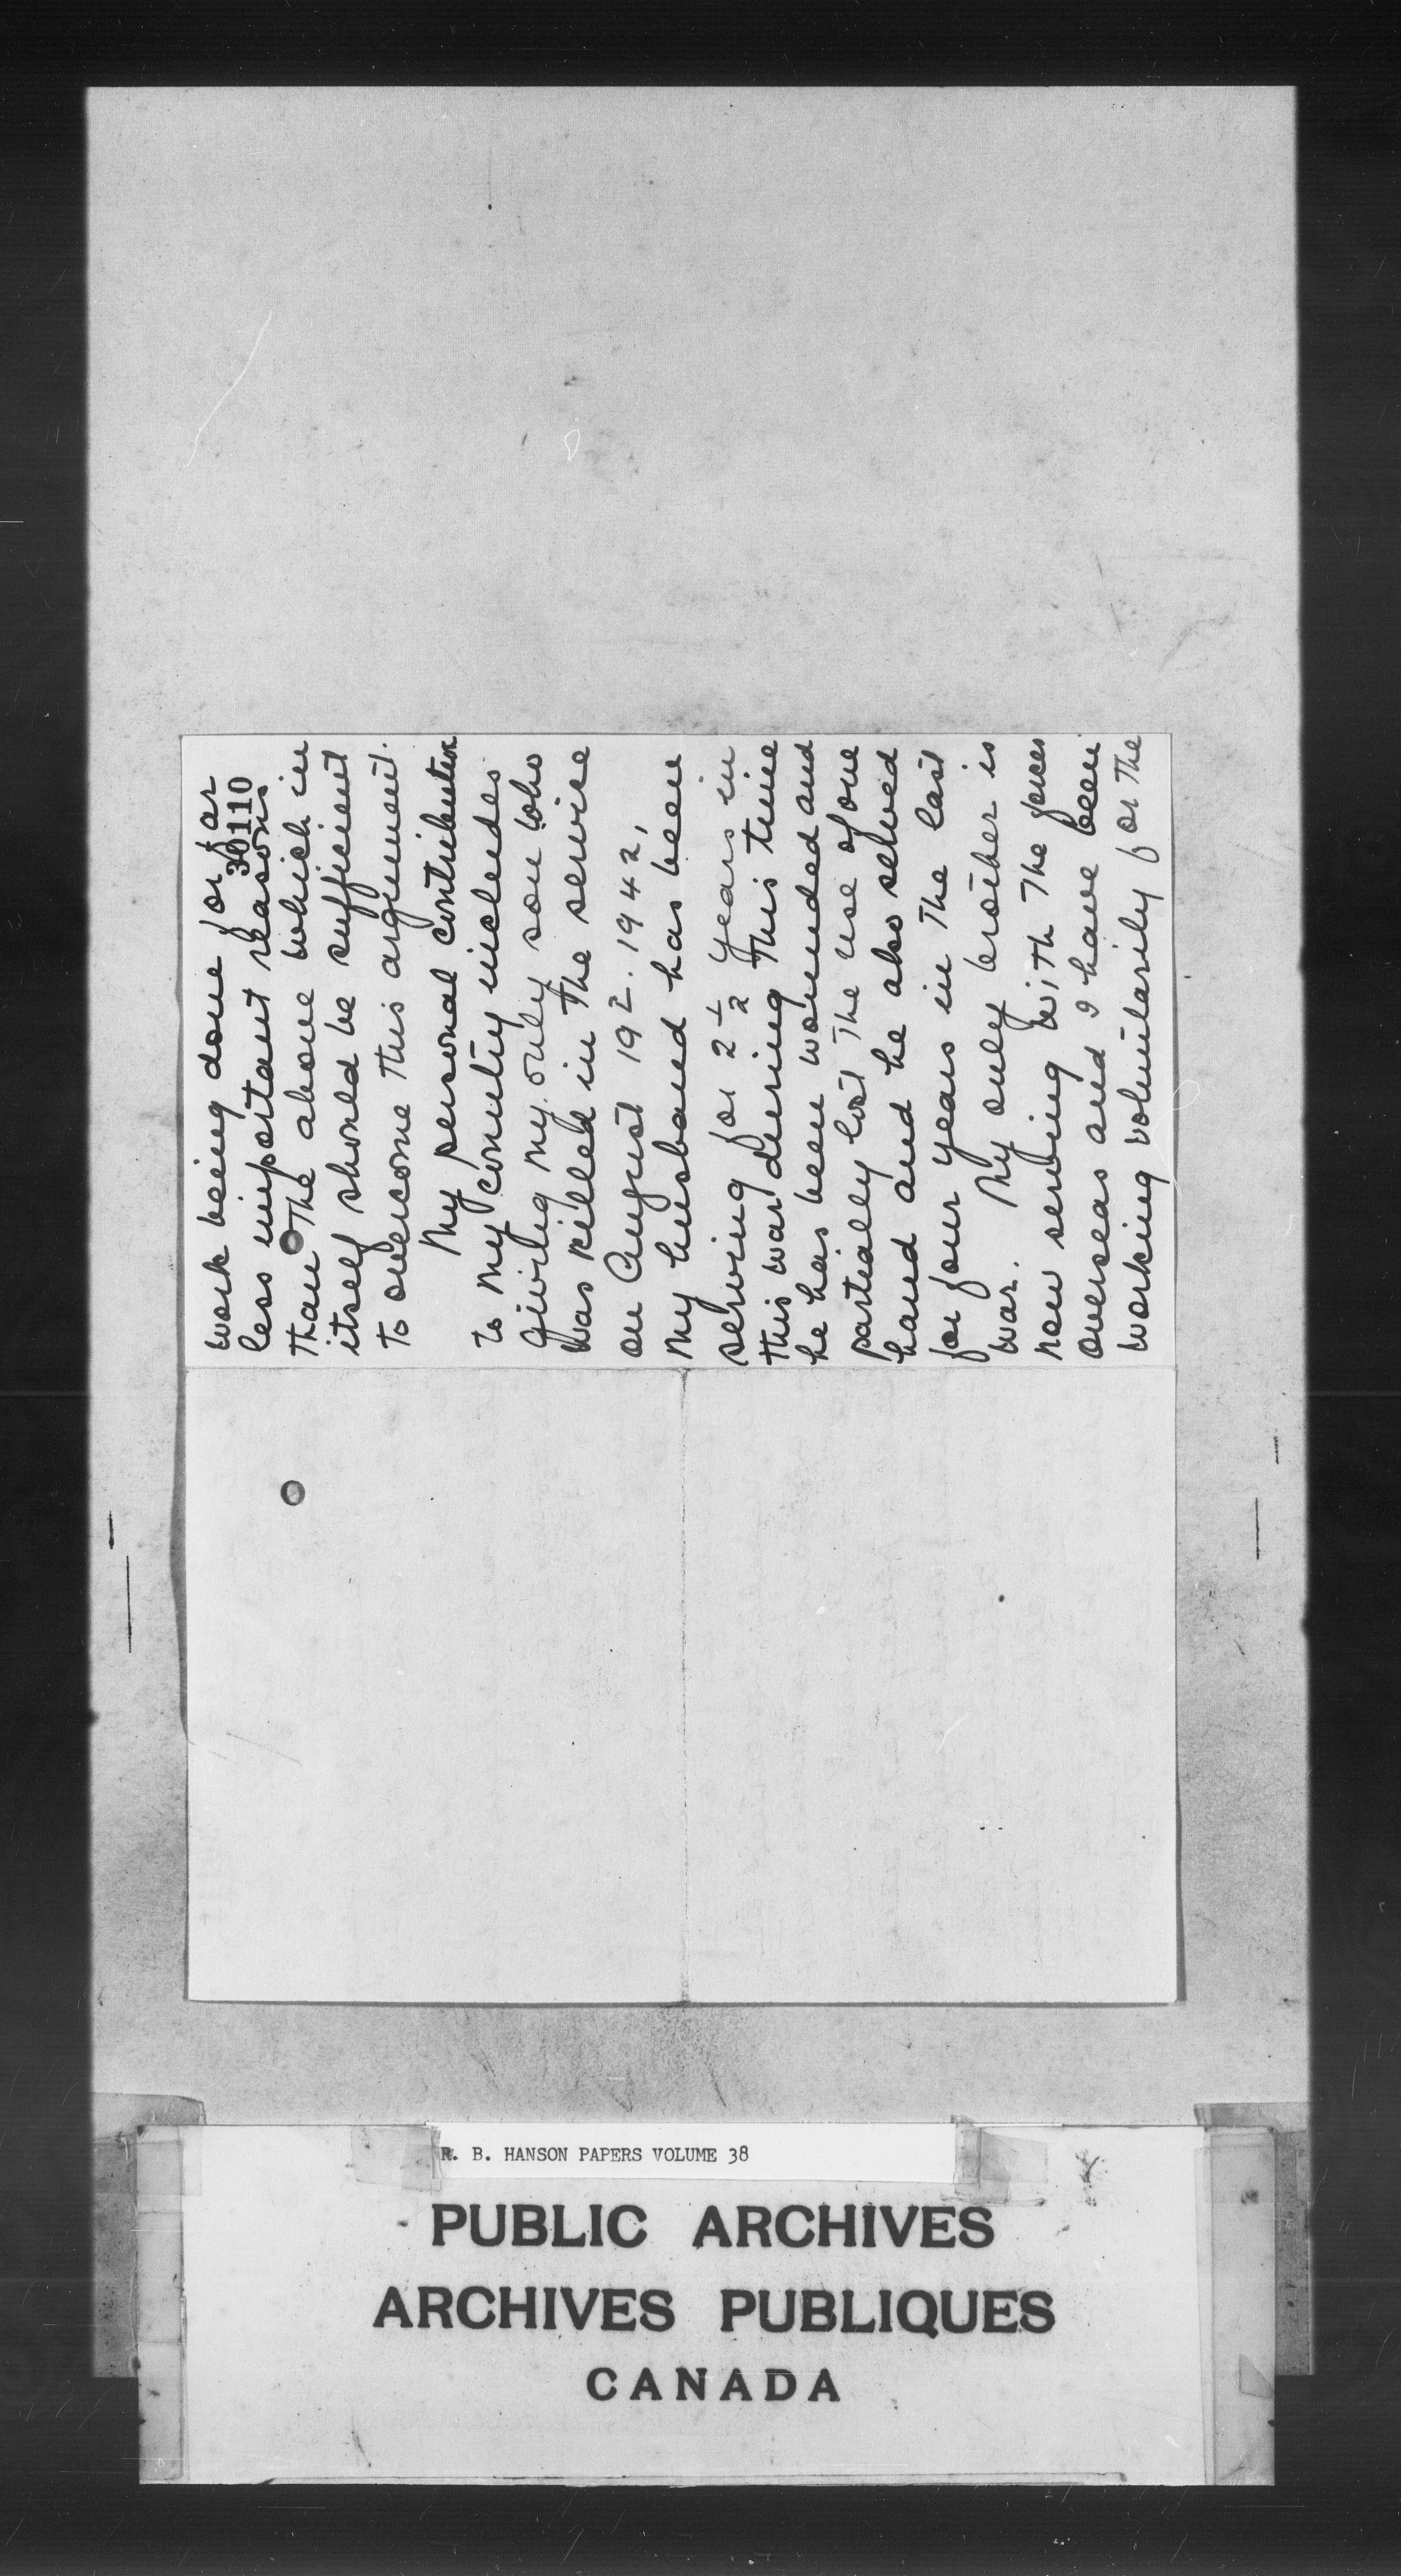 work being done for far
30110
less important reasons
than the above which in
itself should be sufficient
to overcome this argument.
My personal contribution
to my country includes
giving my only son who
was killed in the service
on August 19th. 1942,
my husband has been
serving for 2½ years in
this war during this time
he has been wounded and
partially lost the use of one
hand and he also served
for four years in the last
war. My only brother is
now serving with the forces
overseas and I have been
working voluntarily for the
R. B. HANSON PAPERS VOLUME 38
PUBLIC ARCHIVES
ARCHIVES PUBLIQUES
CANADA